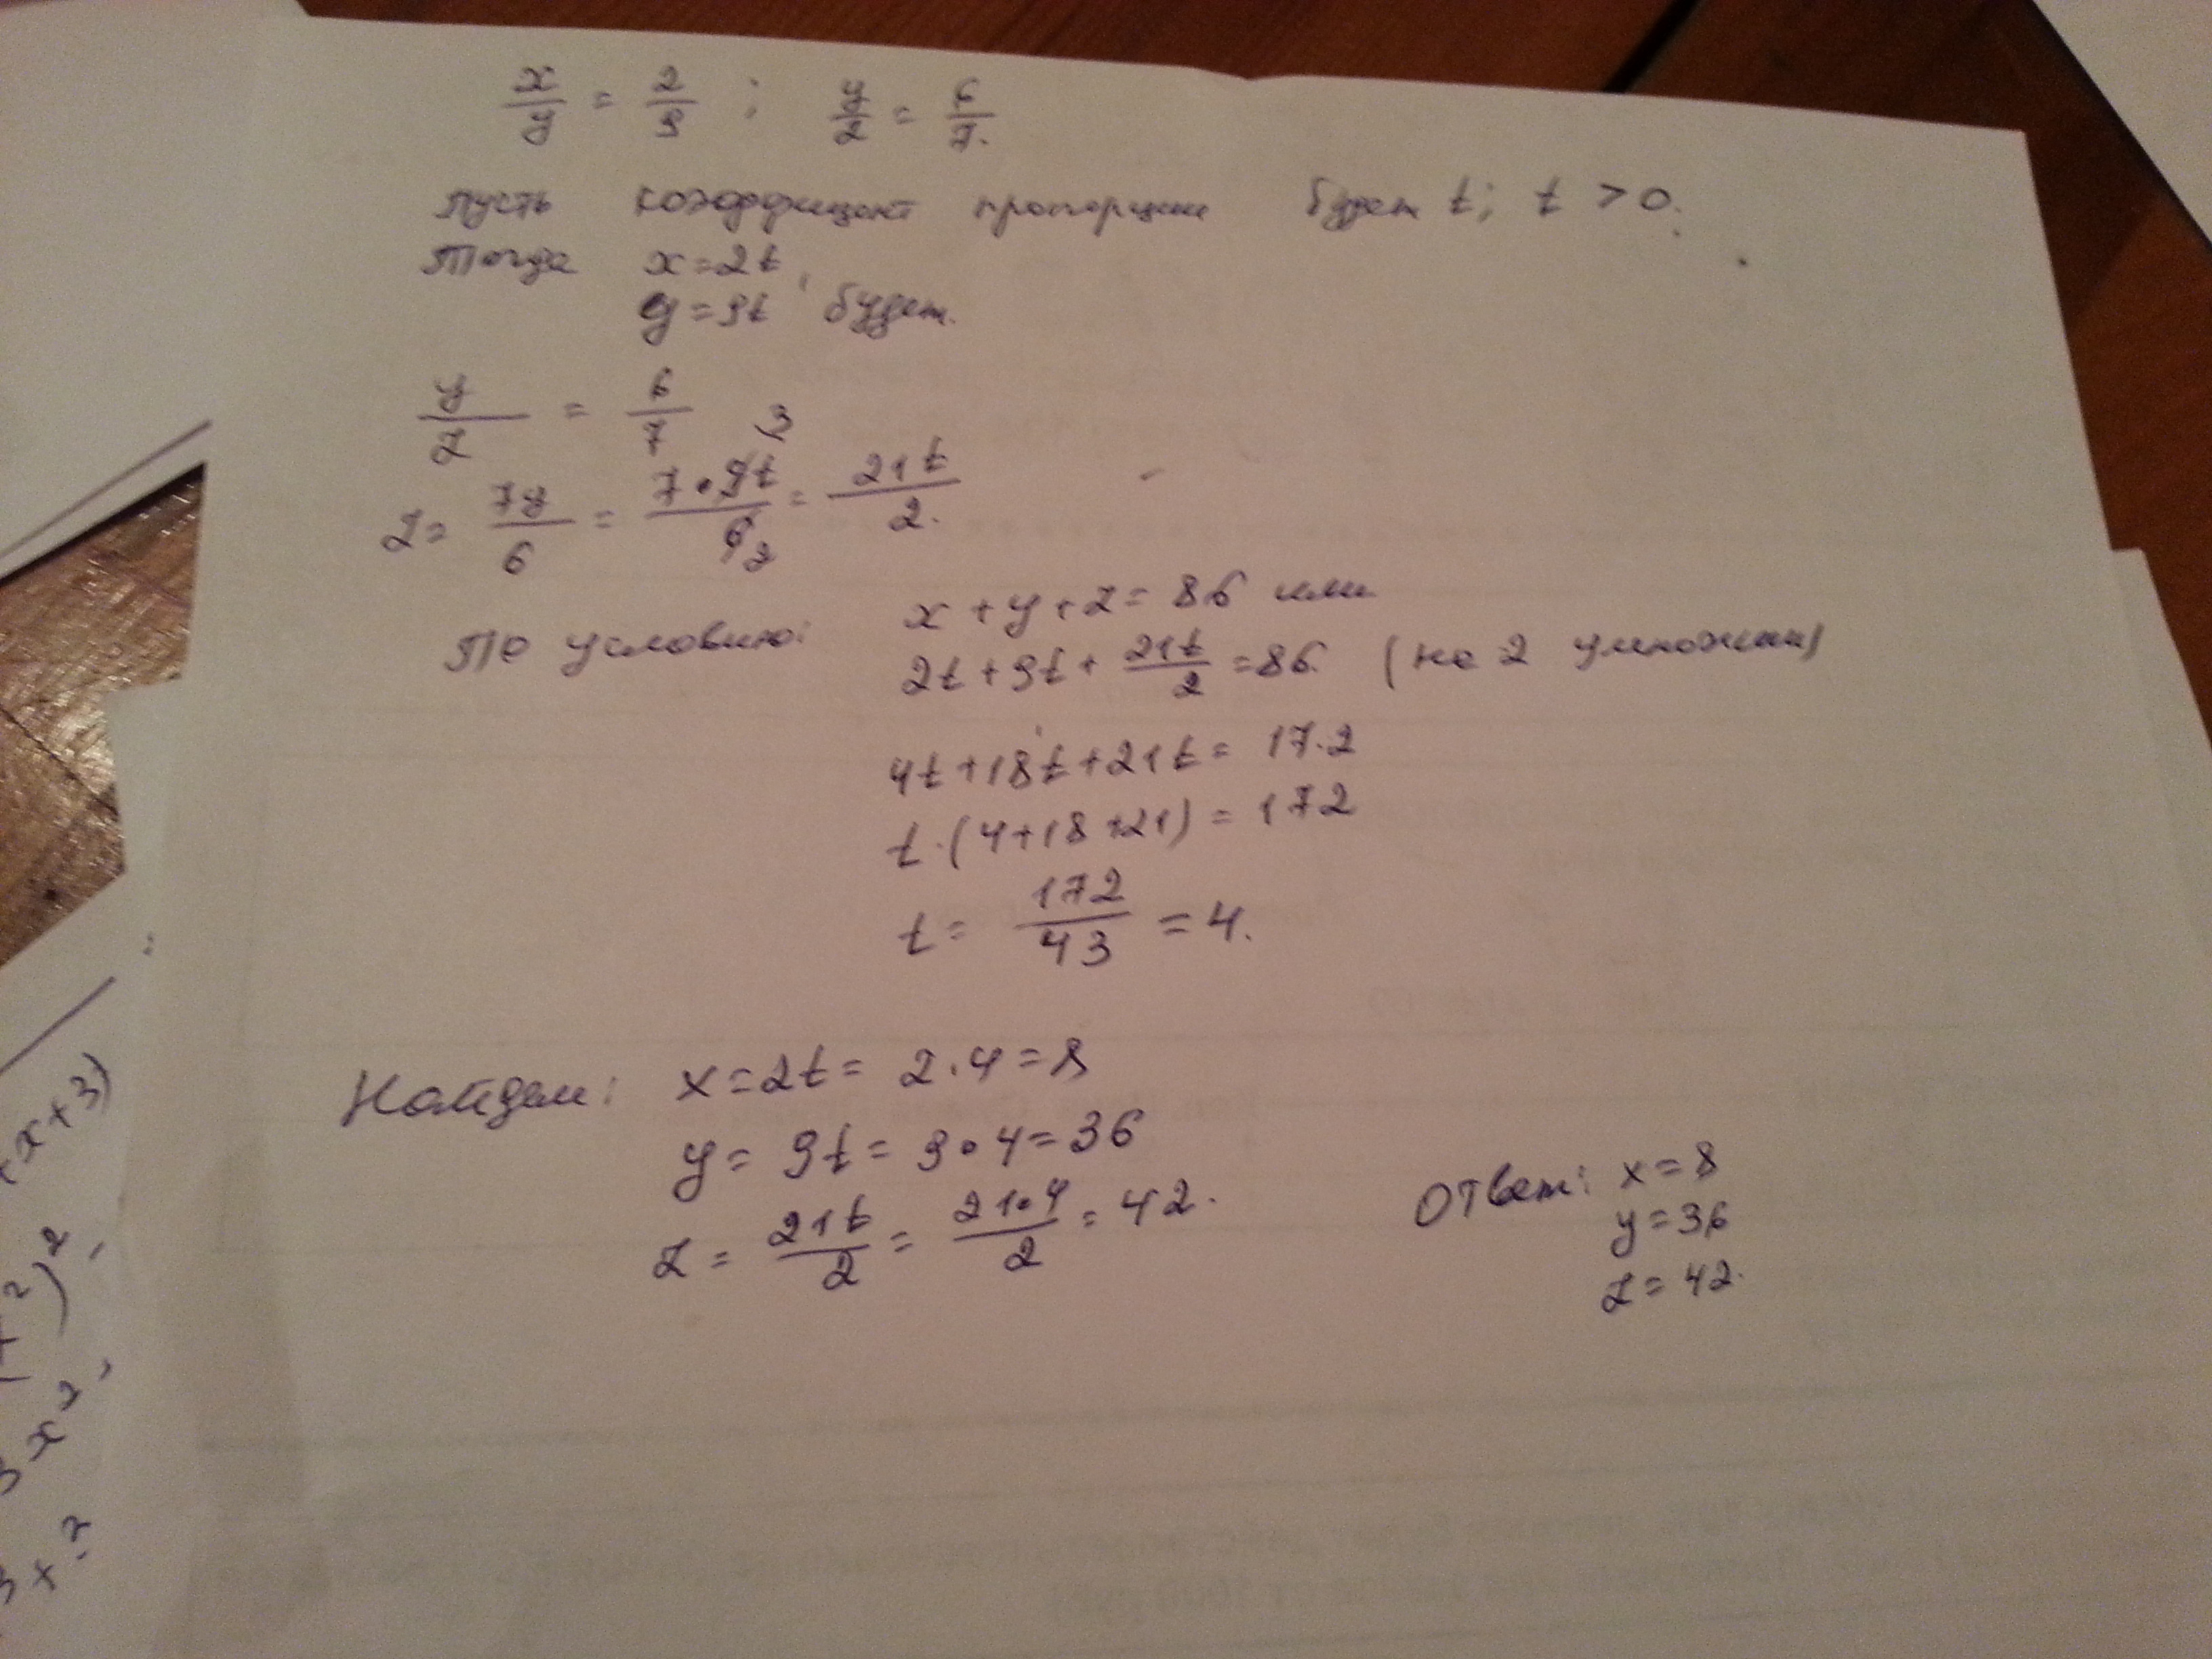 x/y = 2/9 ; y/z = 6/7.
Пусть коэффициент пропорции будет t; t > 0.
Тогда x=2t,
y=9t будет.
y/z = 6/7
3
z= 7y/6 = 7•9t/6 = 21t/2.
2
По условию: x+y+z=86 или
2t+9t+21t/2=86. (на 2 умножим)
4t+18t+21t= 17.2
t·(4+18+21)=172
t= 172/43 =4.
Найдем: x=2t= 2.4=8
y= 9t= 9•4=36
z= 21t/2 = 21•4/2 = 42.
Ответ: x=8
y=36
z=42.
x+3)
²)²,
3x²,